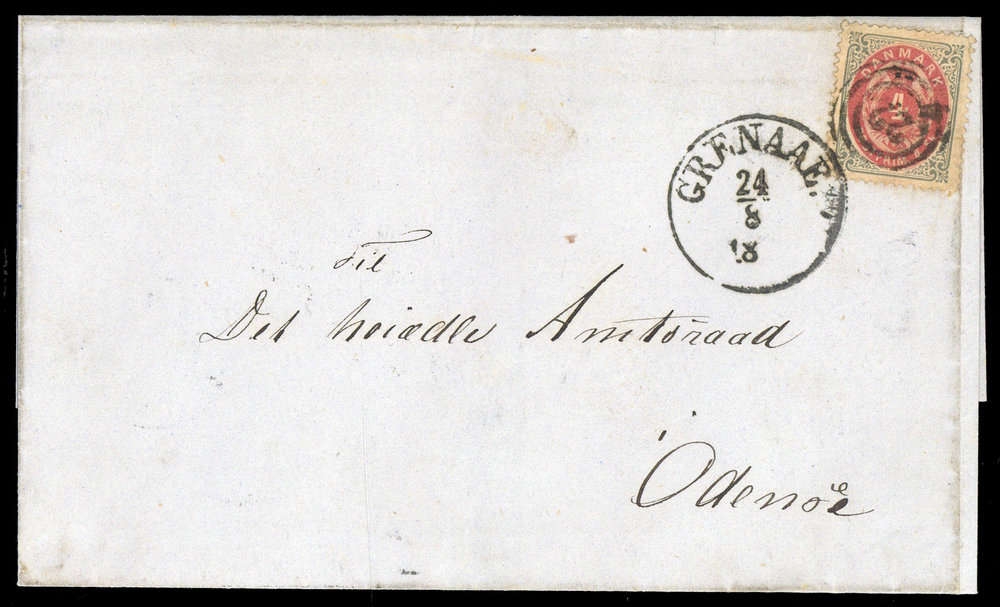 DANMARK
4
GRENAAE.
24
8
18
Til
Det høiædle Amtsraad
Odense